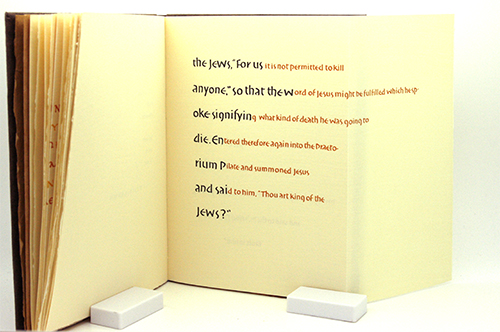 the Jews, "For us it is not permitted to kill
anyone," so that the word of Jesus might be fulfilled which he sp-
oke signifying what kind of death he was going to
die. Entered therefore again into the Praeto-
rium Pilate and summoned Jesus
and said to him, "Thou art king of the
Jews?"